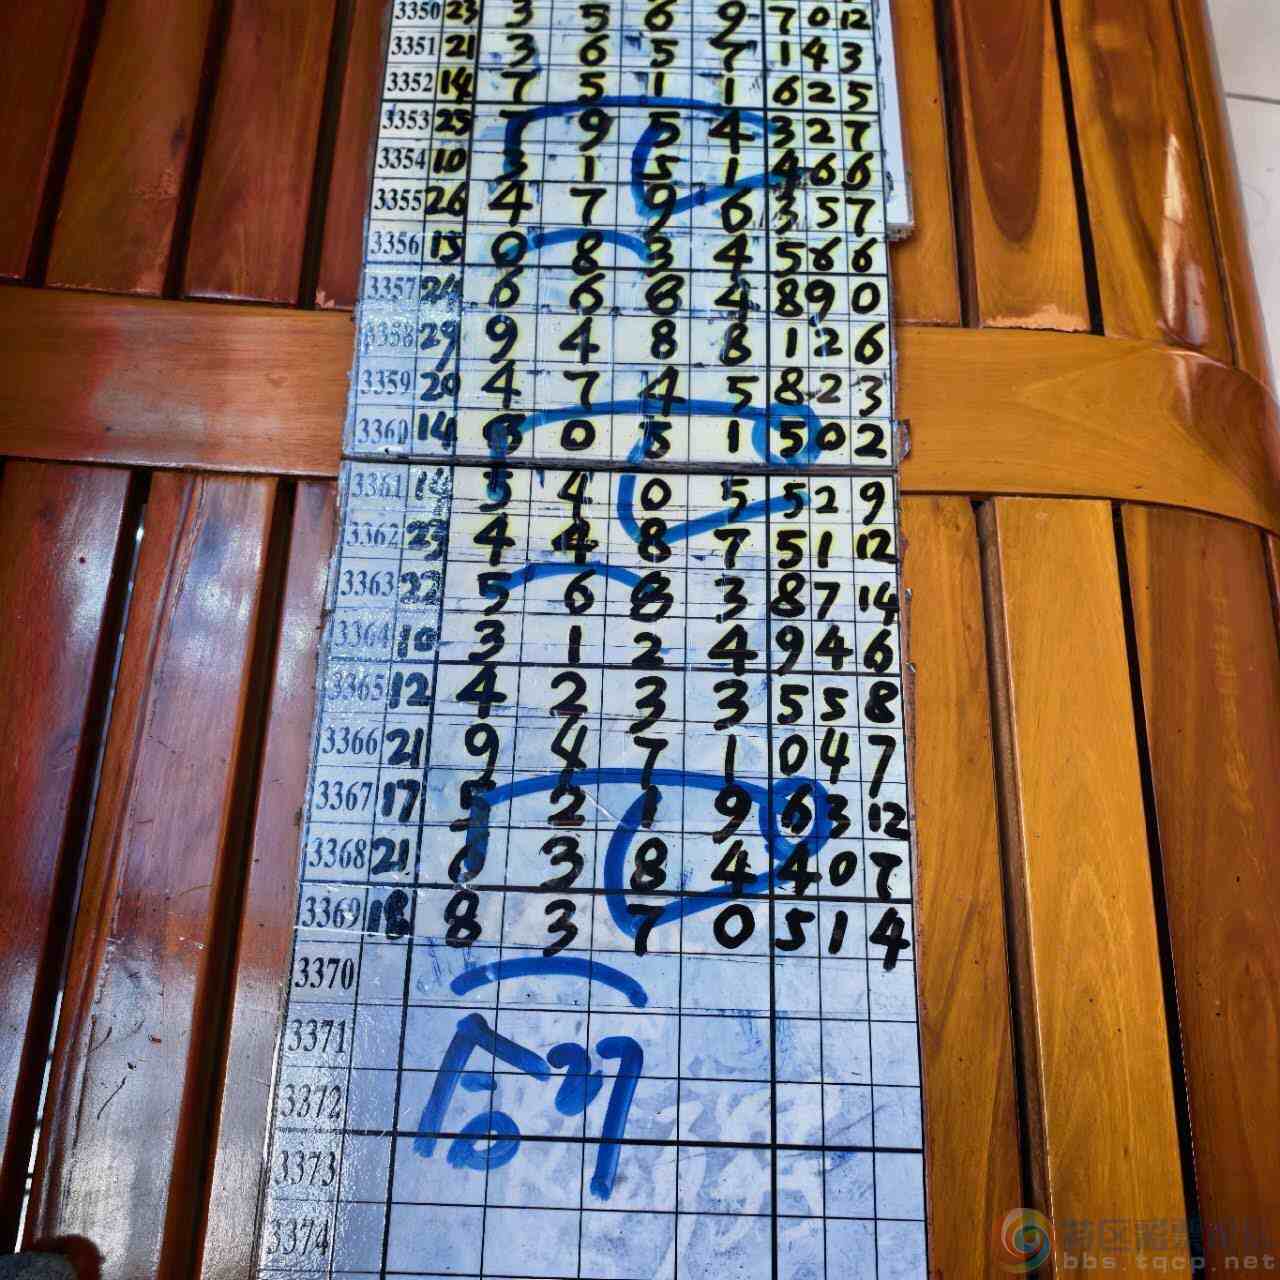 3350 23 3 5 6 9 7 0 12
3351 21 3 6 5 7 1 4 3
3352 14 7 5 1 1 6 2 5
3353 25 7 9 5 4 3 2 7
3354 10 3 1 5 1 4 6 6
3355 26 4 7 9 6 3 5 7
3356 15 0 8 3 4 5 6 6
3357 24 6 6 8 4 8 9 0
3358 29 9 4 8 8 1 2 6
3359 20 4 7 4 5 8 2 3
3360 14 8 0 5 1 5 0 2
3361 14 5 4 0 5 5 2 9
3362 23 4 4 8 7 5 1 12
3363 22 5 6 8 3 8 7 14
3364 10 3 1 2 4 9 4 6
3365 12 4 2 3 3 5 5 8
3366 21 9 4 7 1 0 4 7
3367 17 5 2 1 9 6 3 12
3368 21 6 3 8 4 4 0 7
3369 18 8 3 7 0 5 1 4
3370
3371
合27
3372
3373
3374
bbs.tqcp.net